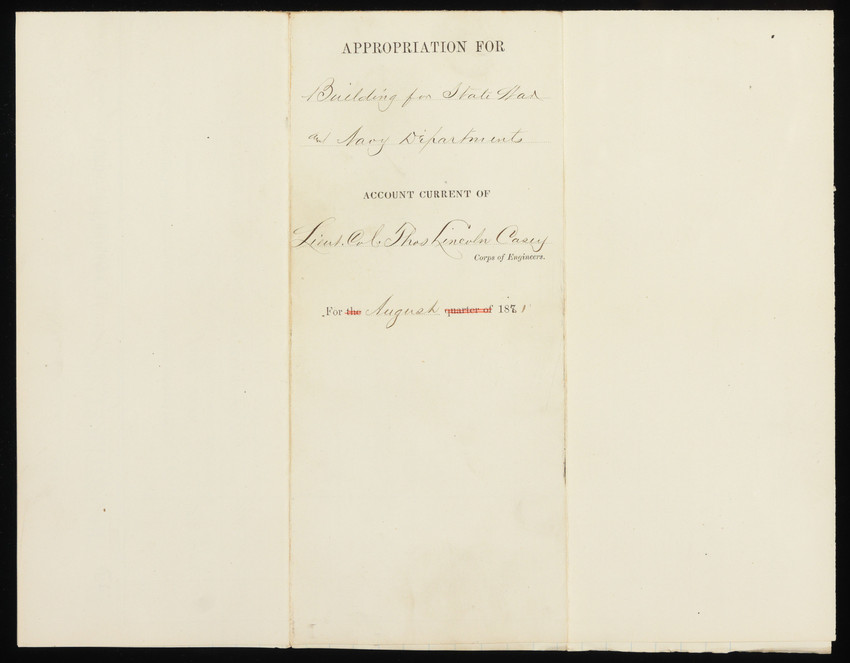 APPROPRIATION FOR
Building for State War
and Navy Departments
ACCOUNT CURRENT OF
Lieut. Col. Thos Lincoln Casey
Corps of Engineers.
For the August quarter of 1881